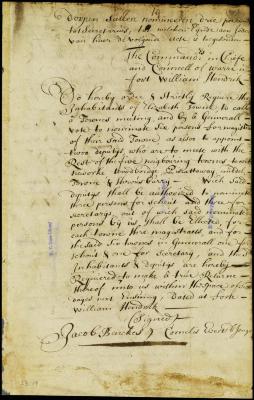 The Commandrs in Chiefe
and Councell of warr in
fort William Hendrick
Do hereby order & Strictly Require the
Inhabitants of Elizabeth Towne to call
a Townes meiting, and by a Generall
vote to nominate six persons for magistr
of their said Towne, as also to appoint
two deputys, who are to meete with the
Rest of the five neigbouring townes to wit
newworke Woodbridge, Piscattaway, midel
Towne & Shrousbury With said
deputys shall be authorized to nominate
three persons for schout and three for
secretarys, out of wich said nominated
persons by us shall be Elected for
each towne three magistrats, and for
the said six townes in Generall one
schout & one for Secretary, and the
Inhabitants & deputys are hereby
Required to make a true Returne
thereof unto us within the space of
dayes next Ensuing, Dated at fort
William Hendrick
(Signed)
Jacob Benckes Cornelis Evertse